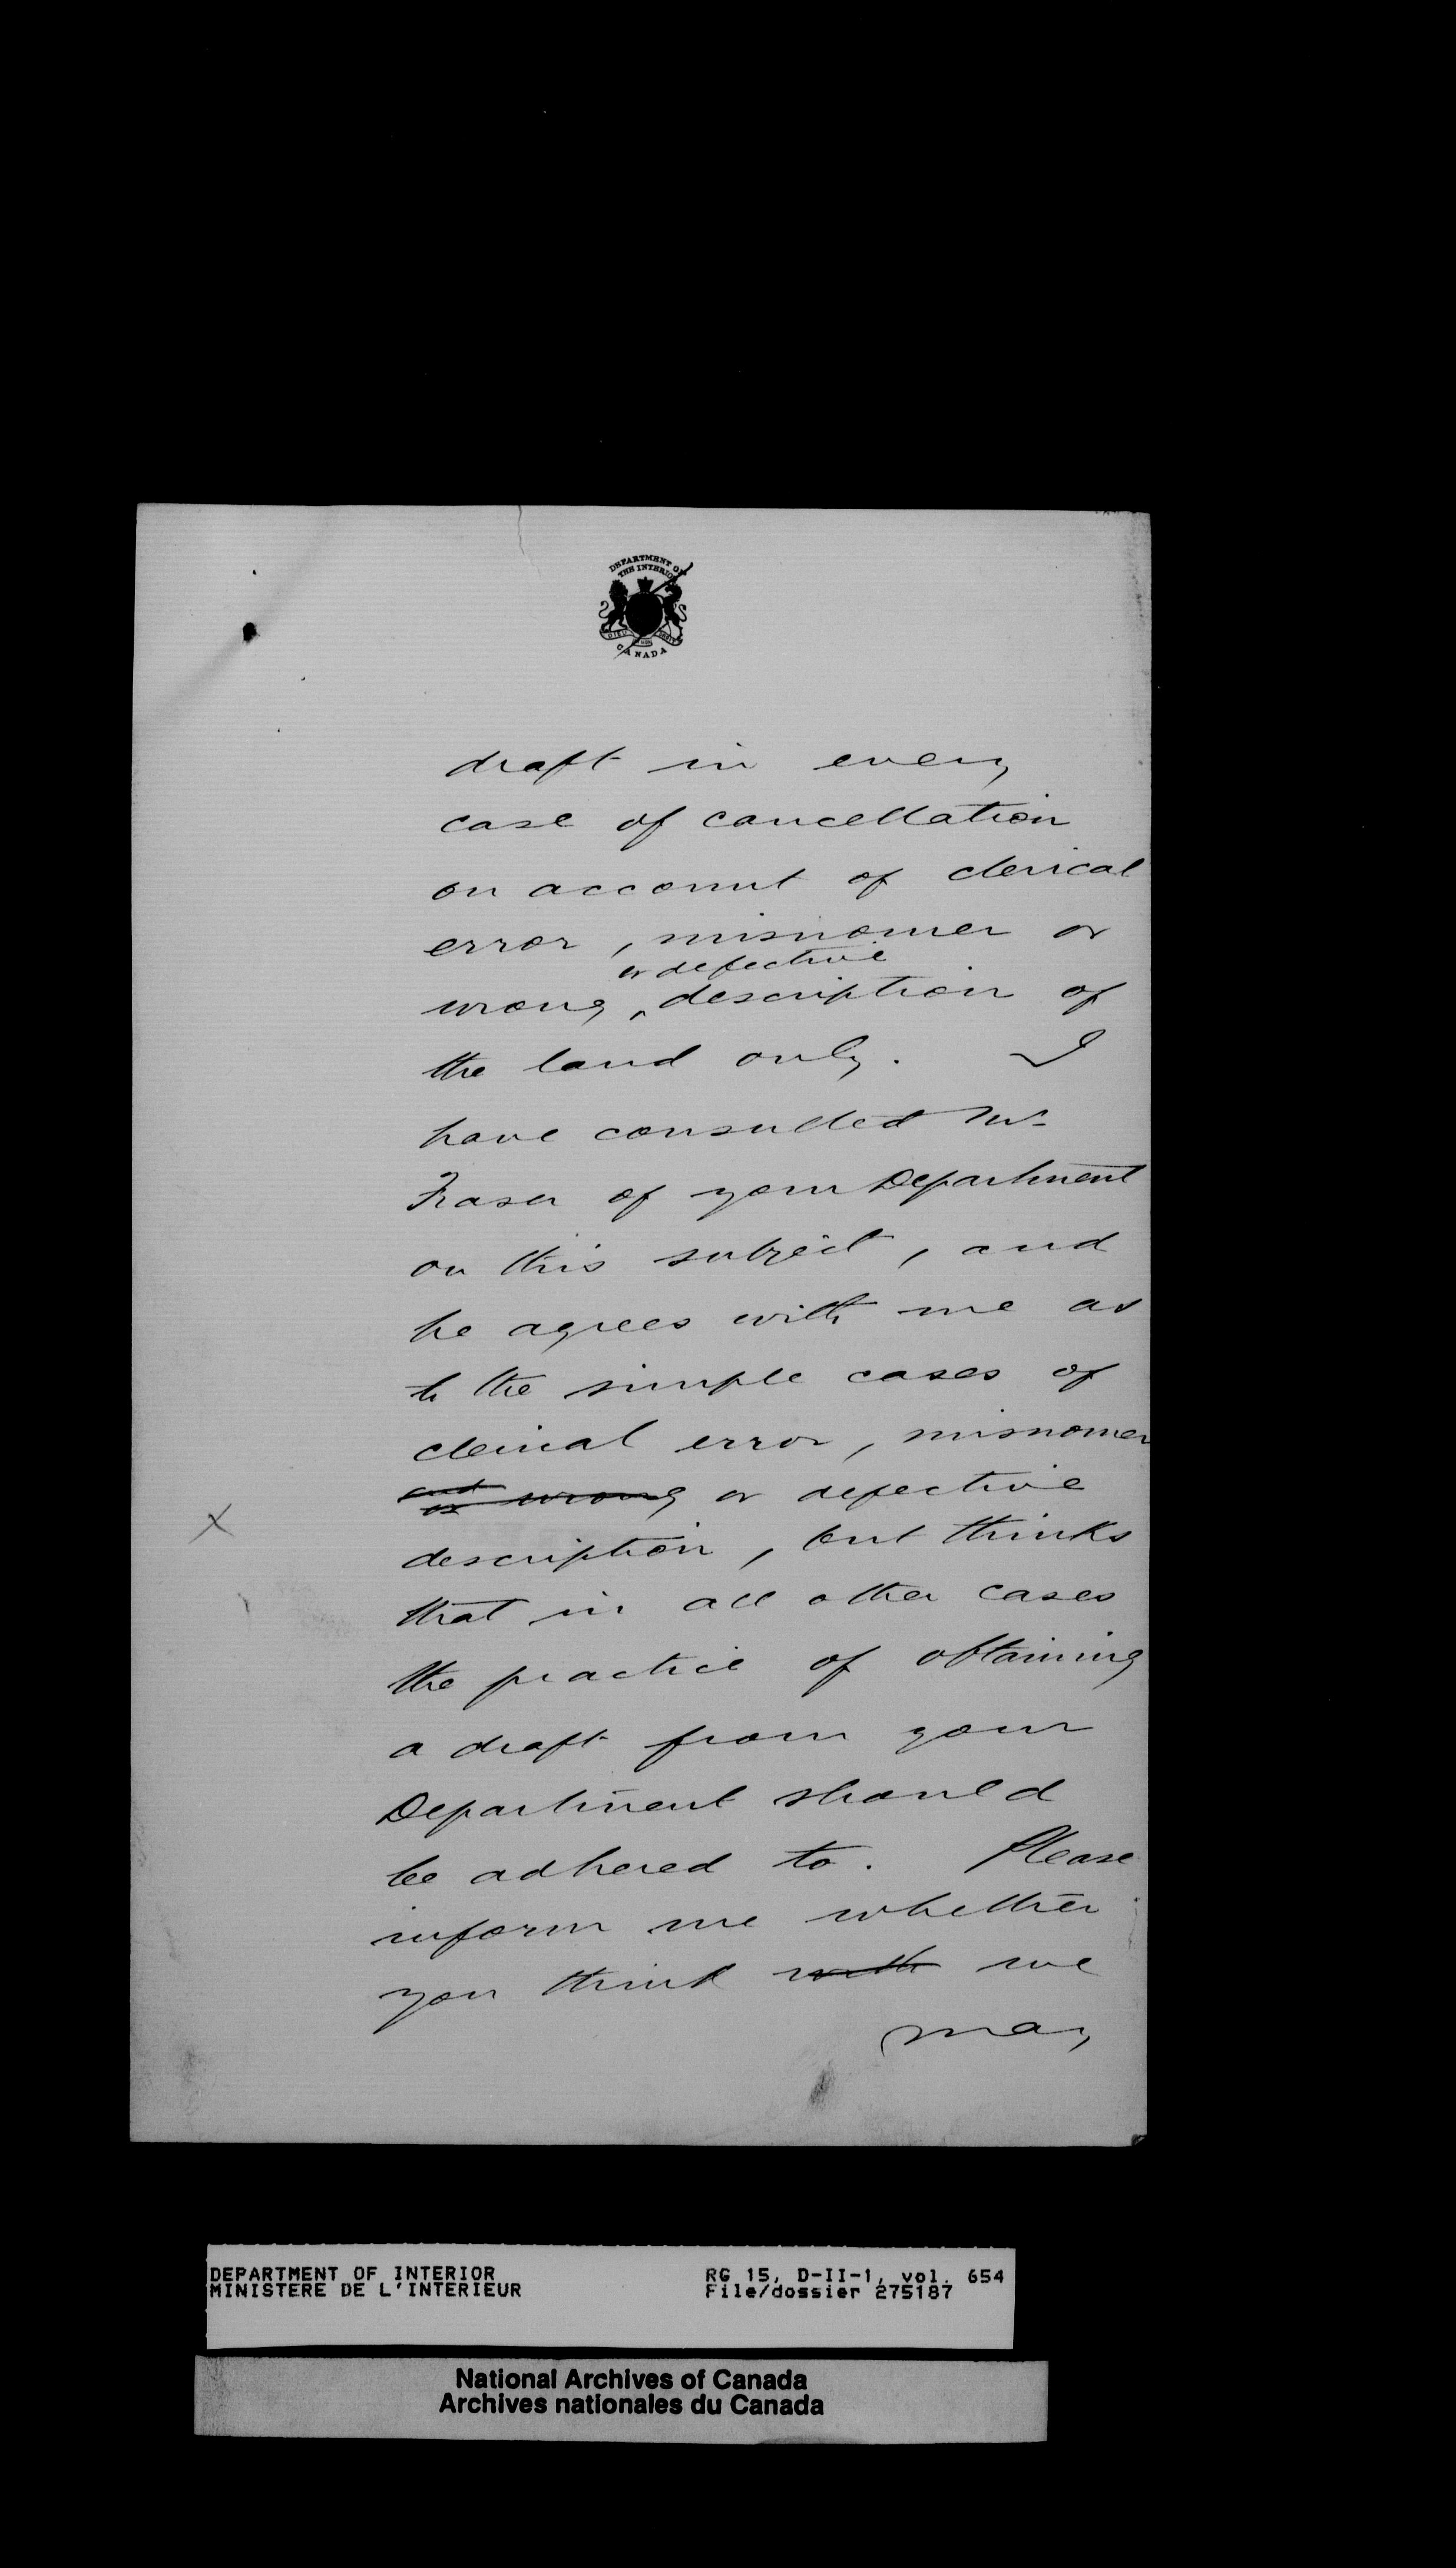 DEPARTMENT OF
THE INTERIOR
DIEU ET MON DROIT
CANADA
draft in every
case of cancellation
on account of clerical
error, misnomer or
or defective
wrong ‸ description of
the land only. I
have consulted Mr
Fraser of your Department
on this subject, and
he agrees with me as
to the simple cases of
clerical error, misnomer
and
or wrong or defective
description, but thinks
that in all other cases
the practice of obtaining
a draft from your
Department should
be adhered to. Please
inform me whether
you think with we
may
X
DEPARTMENT OF INTERIOR RG 15, D-II-1, vol. 654
MINISTERE DE L'INTERIEUR File/dossier 275187
National Archives of Canada
Archives nationales du Canada